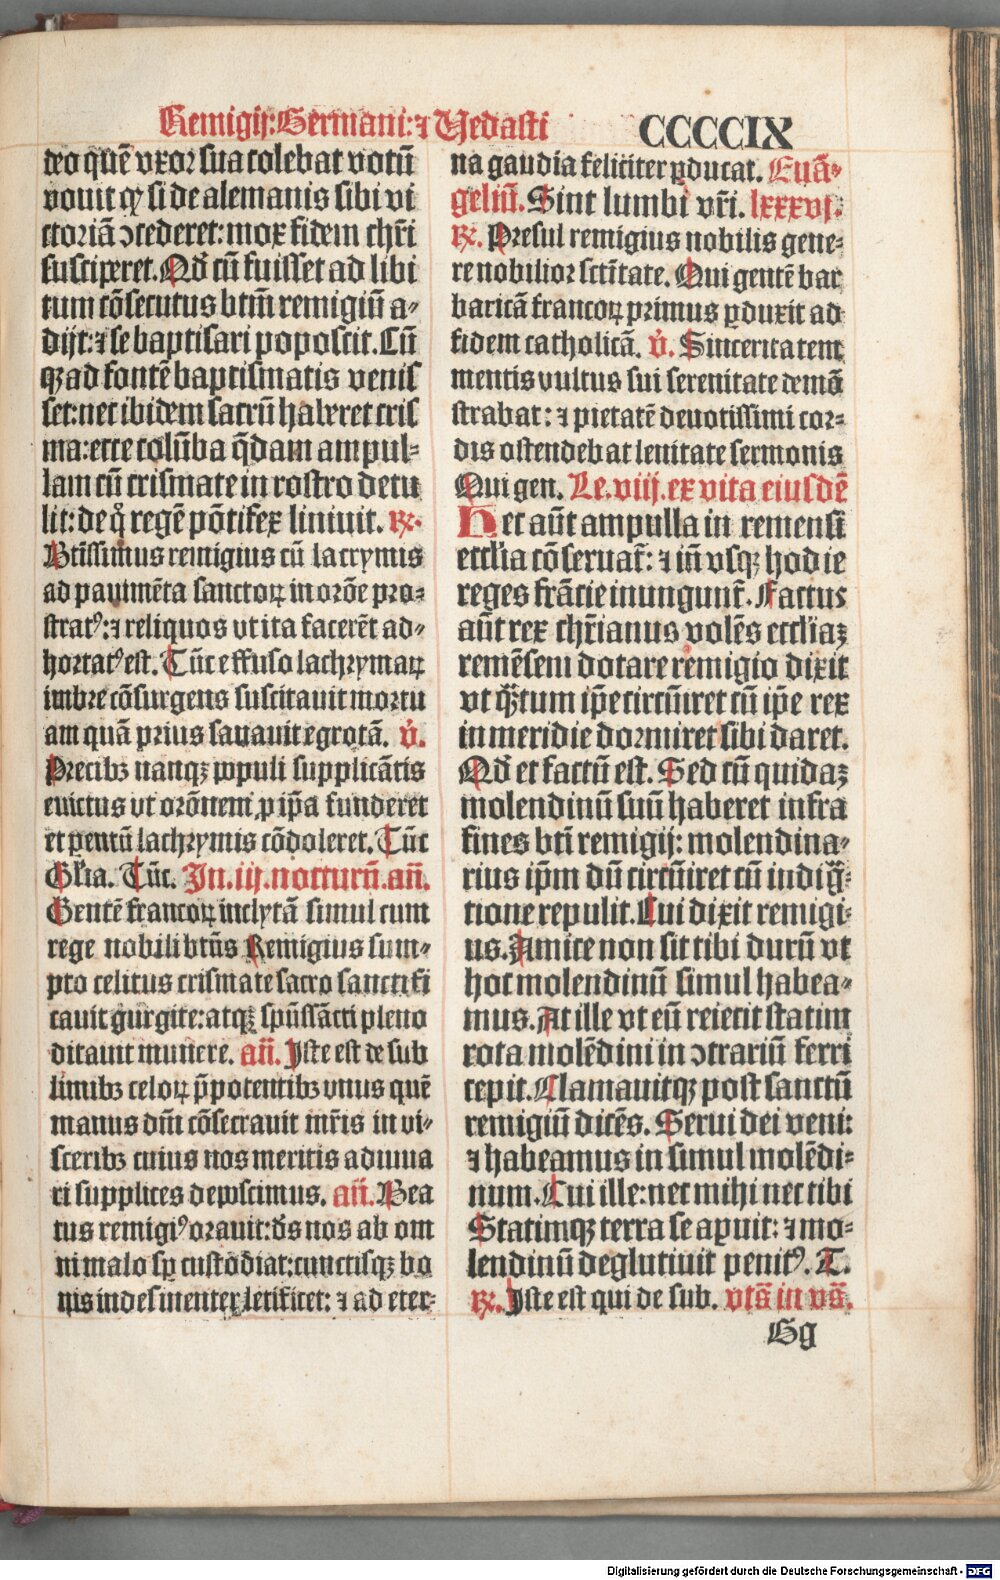 Remigij: Germani: ⁊ Vedasti CCCCCIX
deo quē vxor sua colebat votū
vouit ꝙ si de alemanis sibi vi
ctoriā ↄcederet: mox fidem chr̄i
susciperet. Qd̄ cū fuisset ad libi
tum cōsecutus btm̄ remigiū a⸗
dijt: ⁊ se baptisari poposcit. Cū
qꝫ ad fontē baptismatis venis
set: nec ibidem sacrū haberet cris
ma: ecce colūba q̄dam ampul⸗
lam cū crismate in rostro detu
lit: de qͦ regē pōtifex liniuit. ℞.
Btīssimus remigius cū lacrymis
ad pauimēta sanctoꝝ in orōe pro⸗
stratꝰ: ⁊ reliquos vt ita facerēt ad⸗
hortatꝰ est. Tūc effuso lachrymaꝝ
imbre cōsurgens suscitauit mortu
am quā prius sanauit egrotā. v̓.
Precibꝫ nanqꝫ populi supplicātis
euictus vt orōnem ꝓ ip̄a funderet
et ꝑentū lachrymis cōdoleret. Tūc
Gl̓ia. Tūc. In .iij. nocturū. an̄.
Gentē francoꝝ inclytā simul cum
rege nobili btūs Remigius sum⸗
pto celitus crismate sacro sanctifi
cauit gurgite: atqꝫ sp̄ussācti pleno
ditauit munere. an̄. Iste est de sub
limibꝫ celoꝝ p̄potentibꝫ vnus quē
manus dn̄i cōsecrauit mr̄is in vi⸗
sceribꝫ cuius nos meritis adiuua
ri supplices deposcimus. an̄. Bea
tus remigiꝰ orauit: ds̄ nos ab om
ni malo sp̄ custodiat: cunctisqꝫ bo
nis indesinenter letificet: ⁊ ad eter⸗
na gaudia feliciter ꝑducat. Euā⸗
geliū. Sint lumbi vr̄i. lxxxvj.
℞. Presul remigius nobilis gene⸗
re nobilior sctītate. Qui gentē bar
baricā francoꝝ primus ꝑduxit ad
fidem catholicā. v̓. Sinceritatem
mentis vultus sui serenitate demō
strabat: ⁊ pietatē deuotissimi cor⸗
dis ostendebat lenitate sermonis
Qui gen. Le. viij. ex vita eiusdē
Hec aūt ampulla in remensi
eccl̓ia cōseruat̄: ⁊ in̄ vsqꝫ hodie
reges frācie inungunt̄. Factus
aūt rex chr̄ianus volēs eccl̓iaꝫ
remēsem dotare remigio dixit
vt q̄ꝫtum ip̄e circūiret cū ip̄e rex
in meridie dormiret sibi daret.
Qd̄ et factū est. Sed cū quidaꝫ
molendinū suū haberet infra
fines btī remigij: molendina⸗
rius ip̄m dū circūiret cū indiḡ⸗
tione repulit. Cui dixit remigi⸗
us. Amice non sit tibi durū vt
hoc molendinū simul habea⸗
mus. At ille vt eū reiecit statim
rota molēdini in ↄtrariū ferri
cepit. Clamauitqꝫ post sanctū
remigiū dicēs. Serui dei veni:
⁊ habeamus in simul molēdi⸗
num. Cui ille: nec mihi nec tibi
Statimqꝫ terra se aꝑuit: ⁊ mo⸗
lendinū deglutiuit penitꝰ. T.
℞. Iste est qui de sub. vts̄ in vs̄.
Gg
Digitalisierung gefördert durch die Deutsche Forschungsgemeinschaft - DFG